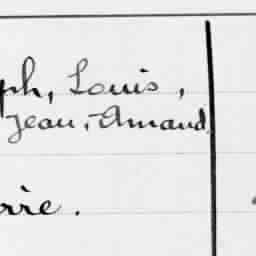 ph, Louis,
Jean, Amand
rrie.